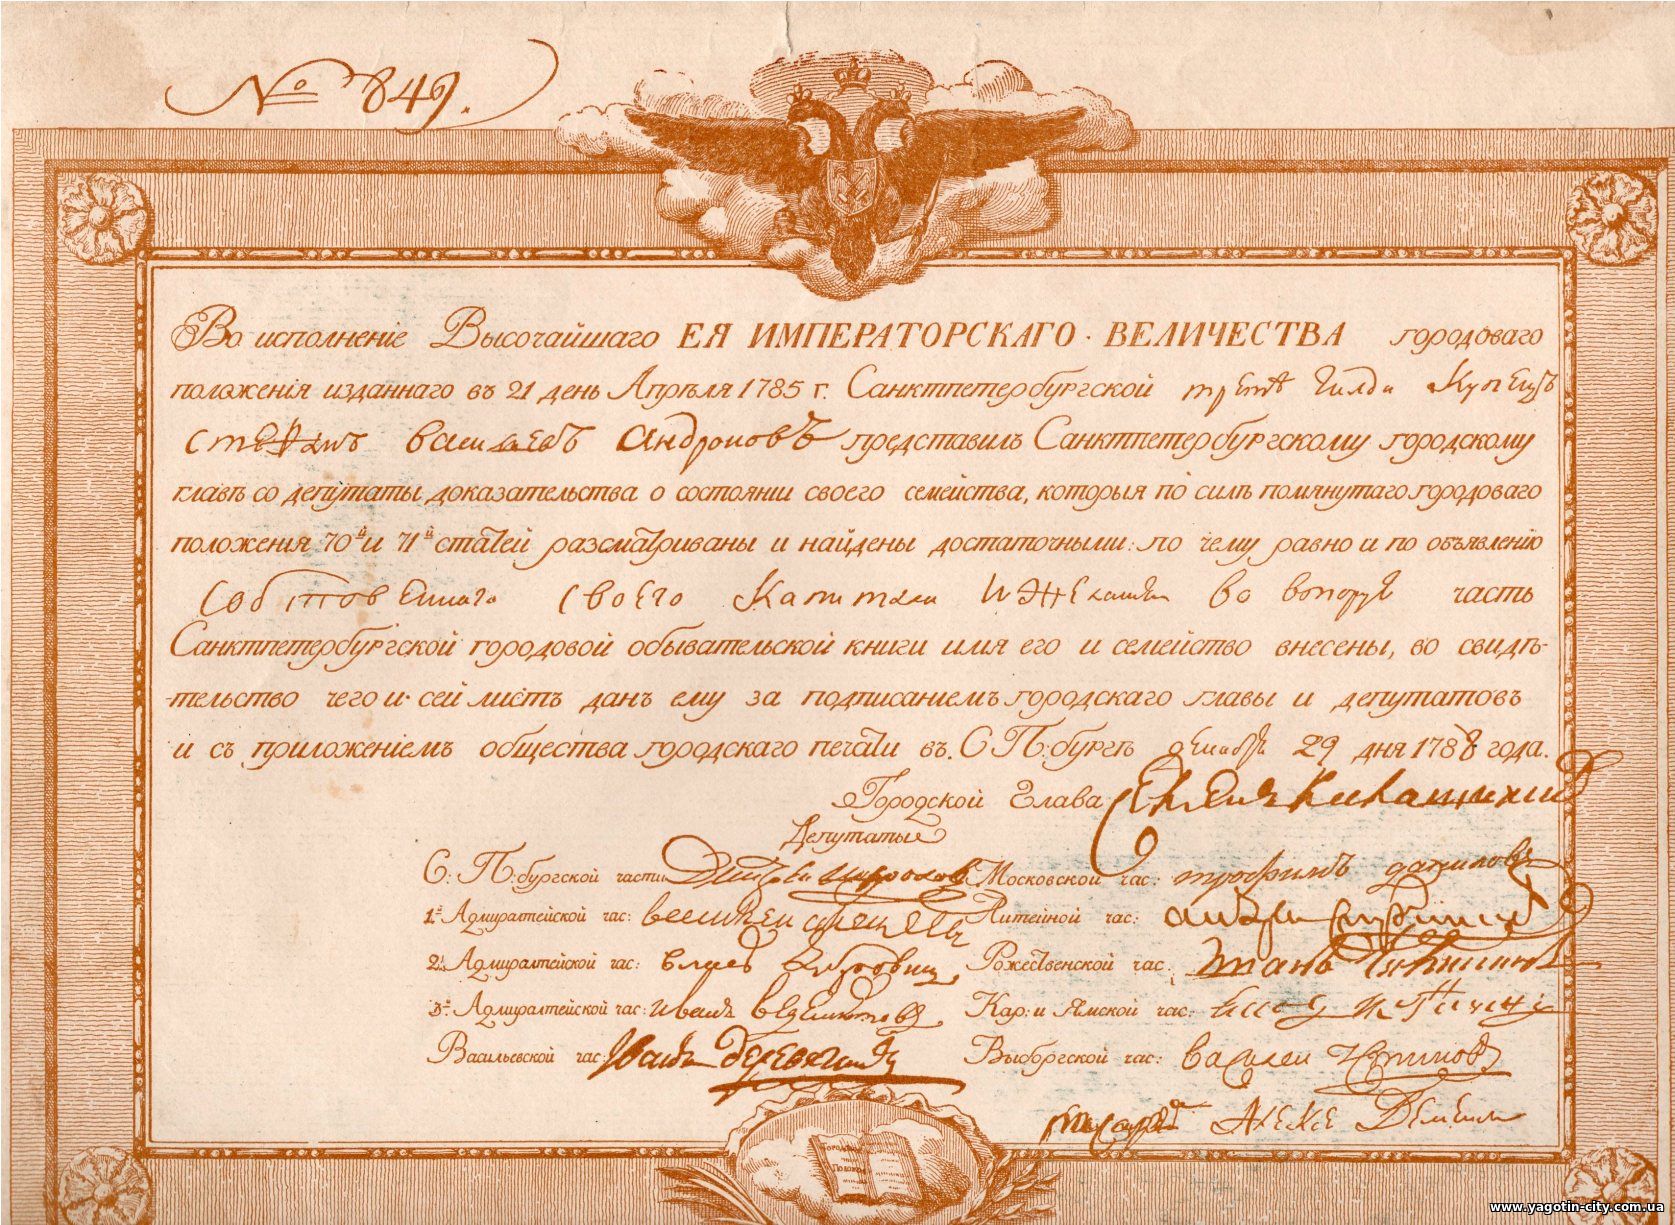 № 849.
Во исполненіе Высочайшаго ЕЯ ИМПЕРАТОРСКАГО ВЕЛИЧЕСТВА городоваго
положенія изданнаго въ 21 день Апрѣля 1785 г. Санктпетербургской третей Гилди Купецъ
Стефанъ Васильевъ Андроновъ представилъ Санктпетербургскому городскому
главѣ со депутаты доказательства о состояніи своего семейства, которыя по силѣ помянутаго городоваго
положенія 70й и 71й статей разсматриваны и найдены достаточными: по чему равно и по объявленію
Собственнаго своего Капитала во вторую часть
Санктпетербургской городовой обывательской книги имя его и семейство внесены, во свидѣ-
-тельство чего и сей листъ данъ ему за подписаніемъ городскаго главы и депутатовъ
и съ приложеніемъ общества городскаго печати въ С. П: бургѣ декабря 29 дня 1788 года.
Городской Глава
Депутаты
С: П: бургской части Московской час: трофимъ данилов
1й Адмиралтейской час: Литейной час:
2й Адмиралтейской час: Рожественской час:
3й Адмиралтейской час: Иванъ Кар: и Ямской час:
Васильевской час: Иванъ Выборгской час: Василеи
www.yagotin-city.com.ua